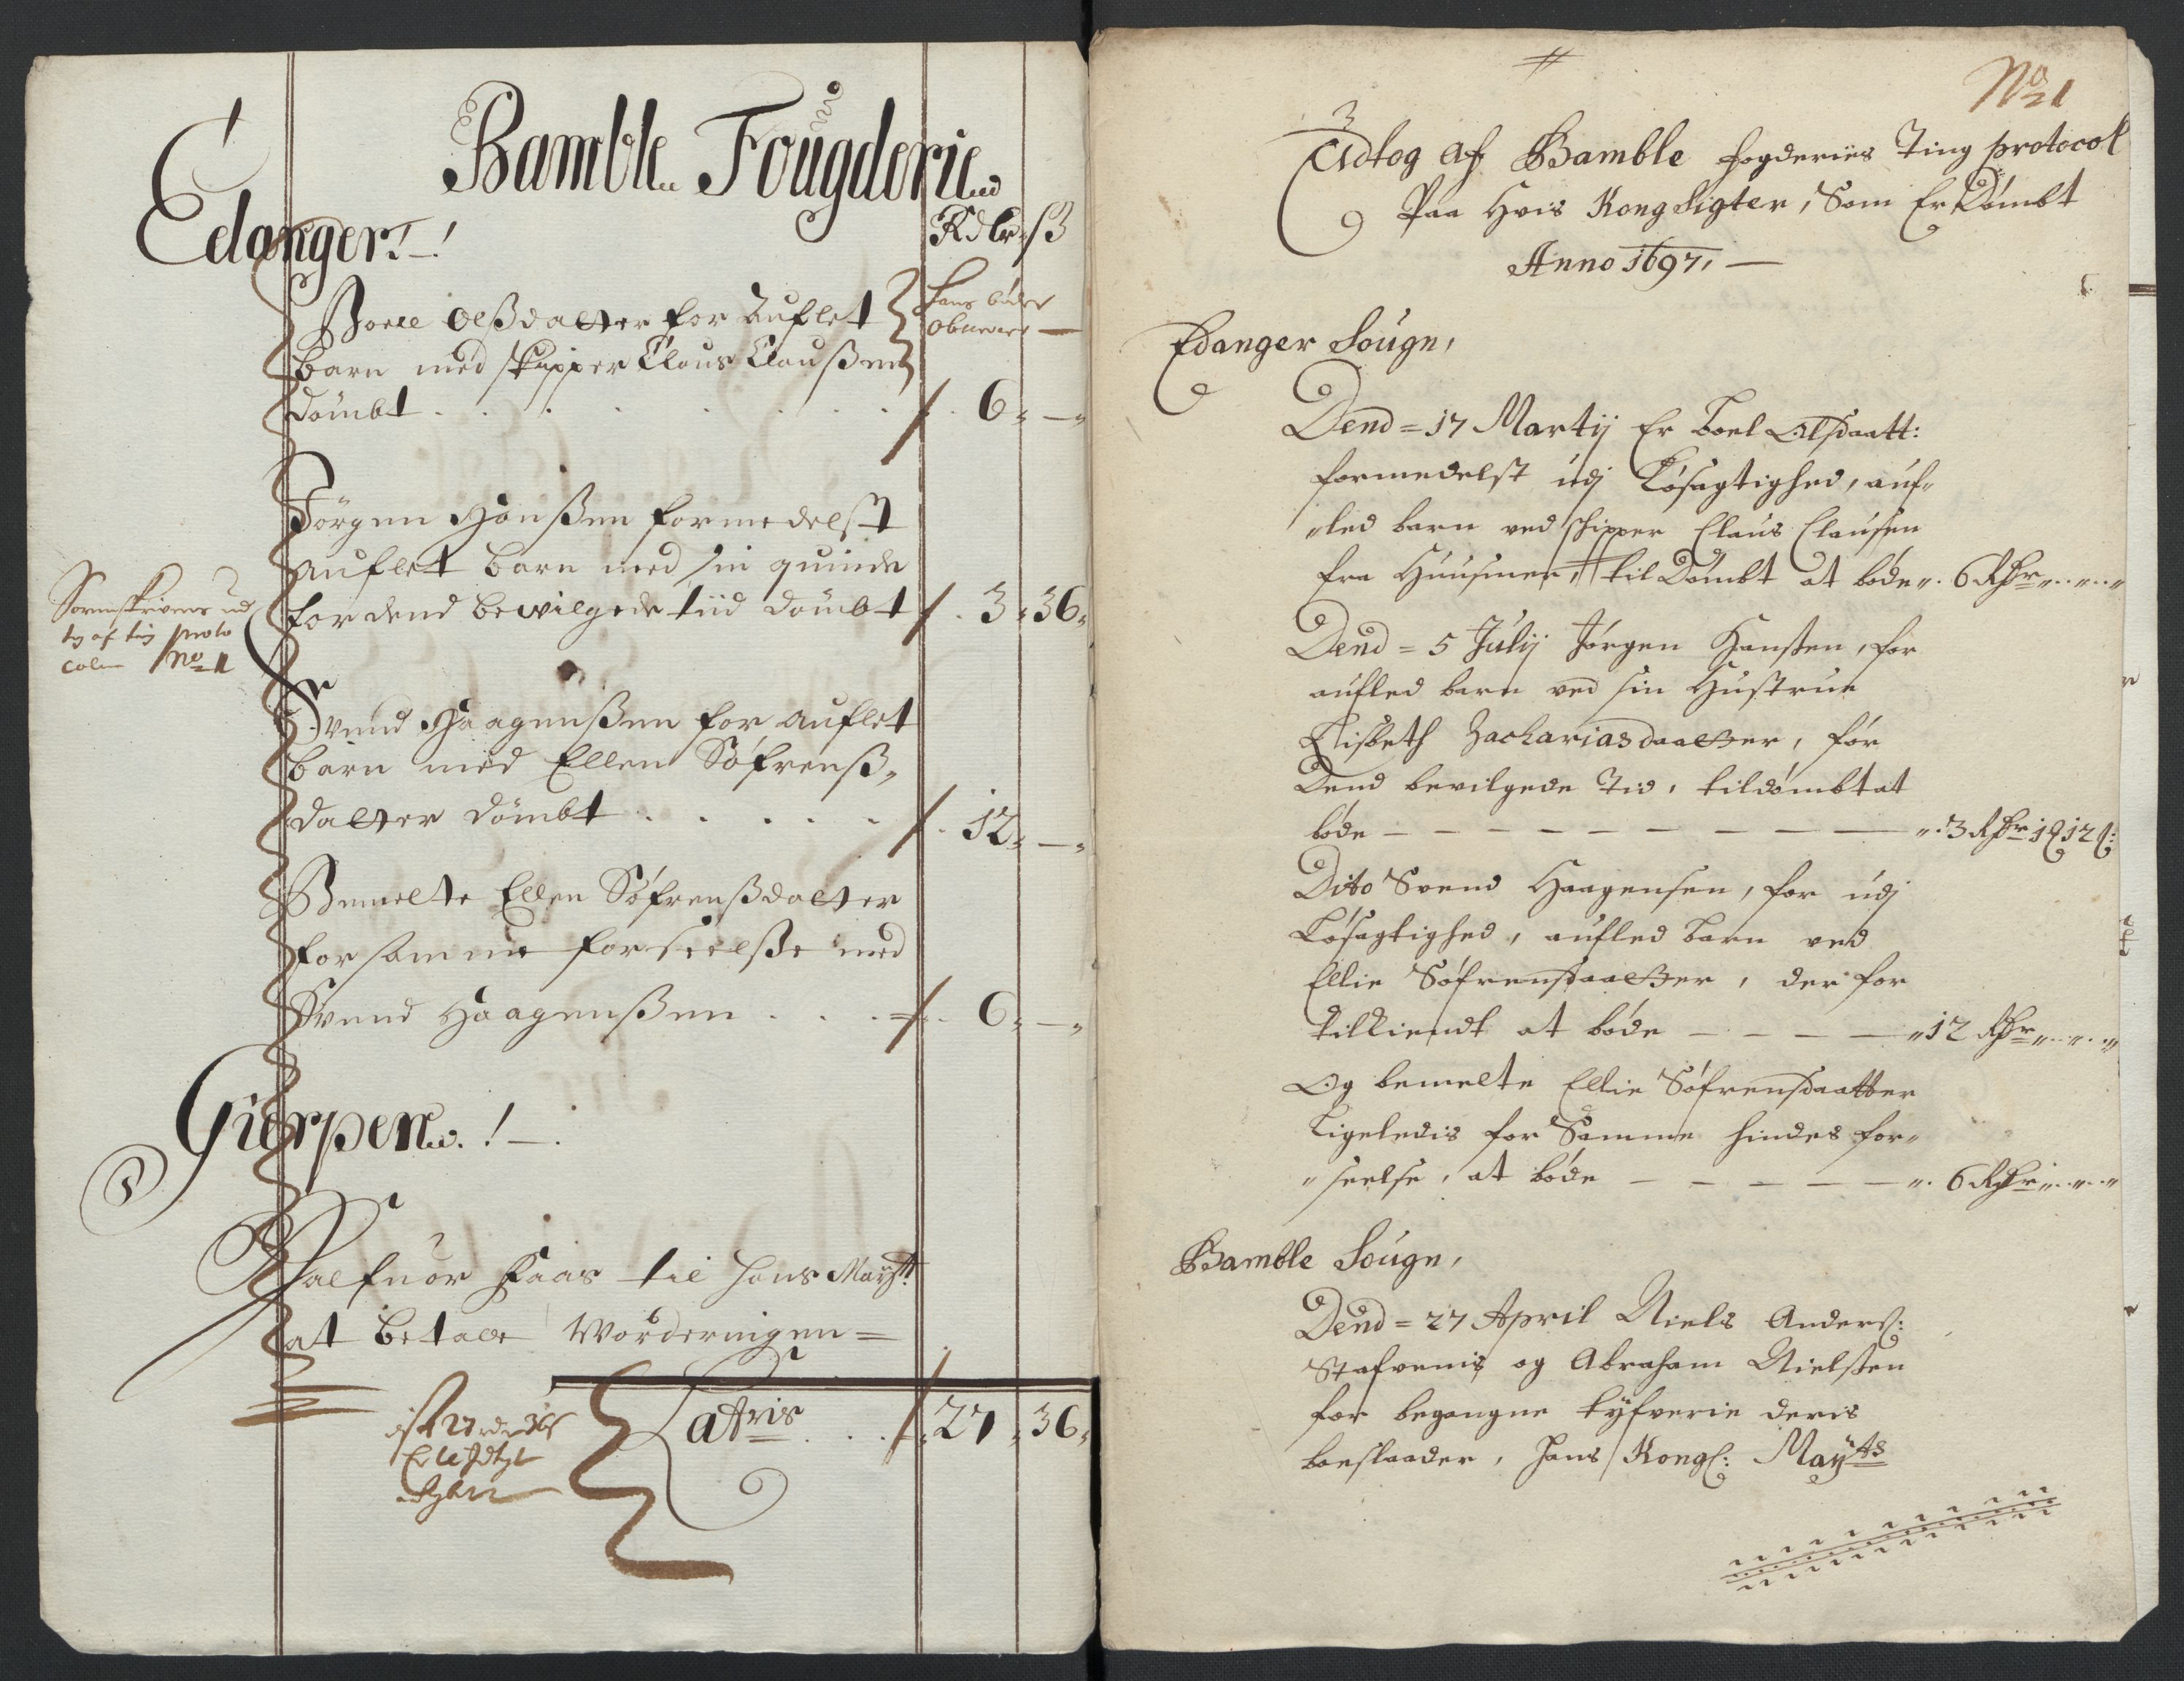 Bamble Fougderie
Edanger
Rdlr ß
Boel Olßdatter for Auflet
Hans bøder
observeres
barn med skipper Claus Claußen
dömbt . . . . . . 6 " — "
Jörgen Hanßen formedelst
Auflet barn med sin quinde
for dend bewilgede tiid dömbt 3 " 36 "
Sorenskrifvers ud
tog af ting proto
collen No 1
Svend Haagenßen for auflet
barn med Ellen Söfrenß„
datter dömbt . . . . . 12 " — "
Bemelte Ellen Söfrenßdatter
for samme forseelße med
Svend Haagenßen . . . 6 " — "
Gierpen
Halfuor Faas til Hans Mayst:
at betale Worderingen =
Latris . . . 27 " 36 "
No 1
Udtog af Bamble fogderies Ting protocol
Paa Hvis Kongs Sigter, Som Er Dömbt
Anno 1697,
Edanger Sougn,
Dend = 17 Martij Er Boel Olsdaatt:
formedelst udj Lösagtighed, auf„
„led barn ved schipper Claus Clausen
fra Huusmer, til Dömbt at böde „. 6 Rdr „..„..„
Dend = 5 Julij Jörgen Hanßen, for
aufled barn ved sin Hustrue
Elisbeth Zachariasdaatter, för
Dend bevilgede Tid, tildömbt at
böde — — — — — „. 3 Rdr 1 12 ß:
Dito Svend Haagensen, for udj
Lösagtighed, aufled barn ved
Ellie Söfrensdaatter, der for
tilkiendt at böde — — — — „ 12 Rdr „..„..„
Og bemelte Ellie Söfrensdaatter
Ligeledis for Samme hindes for„
„seelse, at böde — — — — — „. 6 Rdr „..„..„
Bamble Sougn,
Dend = 27 April Niels Anders:
Stafvenis og Abraham Nielsen
for begangne tyfverie deris
boeslaader, Hans Kongl: Mayts